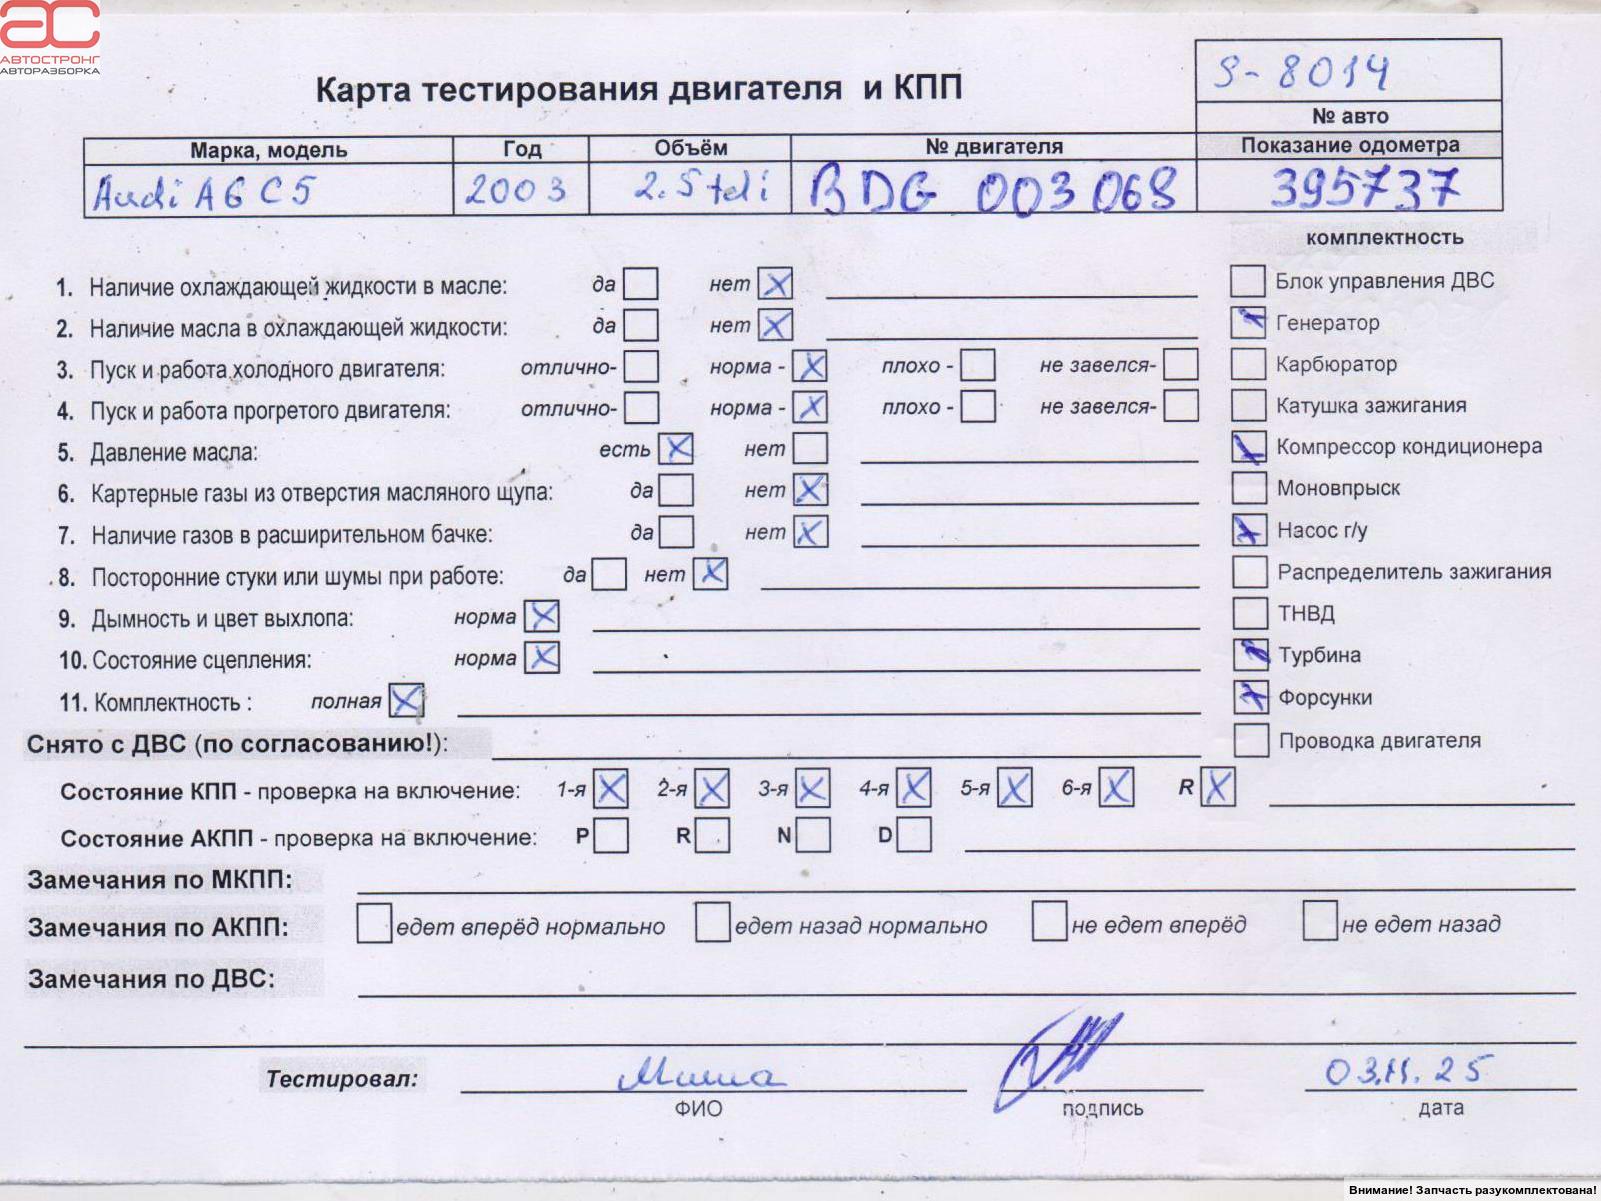 АС
АВТОСТРОНГ
АВТОРАЗБОРКА
Карта тестирования двигателя и КПП
S-8014
№ авто
Марка, модель Год Объём № двигателя Показание одометра
Audi A6 C5 2003 2.5 tdi BDG 003068 395737
комплектность
1. Наличие охлаждающей жидкости в масле: да нет X
Блок управления ДВС
2. Наличие масла в охлаждающей жидкости: да нет X
Генератор
3. Пуск и работа холодного двигателя: отлично- норма - X плохо - не завелся-
Карбюратор
4. Пуск и работа прогретого двигателя: отлично- норма - X плохо - не завелся-
Катушка зажигания
5. Давление масла: есть X нет
Компрессор кондиционера
6. Картерные газы из отверстия масляного щупа: да нет X
Моновпрыск
7. Наличие газов в расширительном бачке: да нет X
Насос г/у
8. Посторонние стуки или шумы при работе: да нет X
Распределитель зажигания
9. Дымность и цвет выхлопа: норма X
ТНВД
10. Состояние сцепления: норма X
Турбина
11. Комплектность : полная X
Форсунки
Снято с ДВС (по согласованию!):
Проводка двигателя
Состояние КПП - проверка на включение: 1-я X 2-я X 3-я X 4-я X 5-я X 6-я X R X
Состояние АКПП - проверка на включение: P R N D
Замечания по МКПП:
Замечания по АКПП: едет вперёд нормально едет назад нормально не едет вперёд не едет назад
Замечания по ДВС:
Тестировал: Миша 03.11.25
ФИО подпись дата
Внимание! Запчасть разукомплектована!